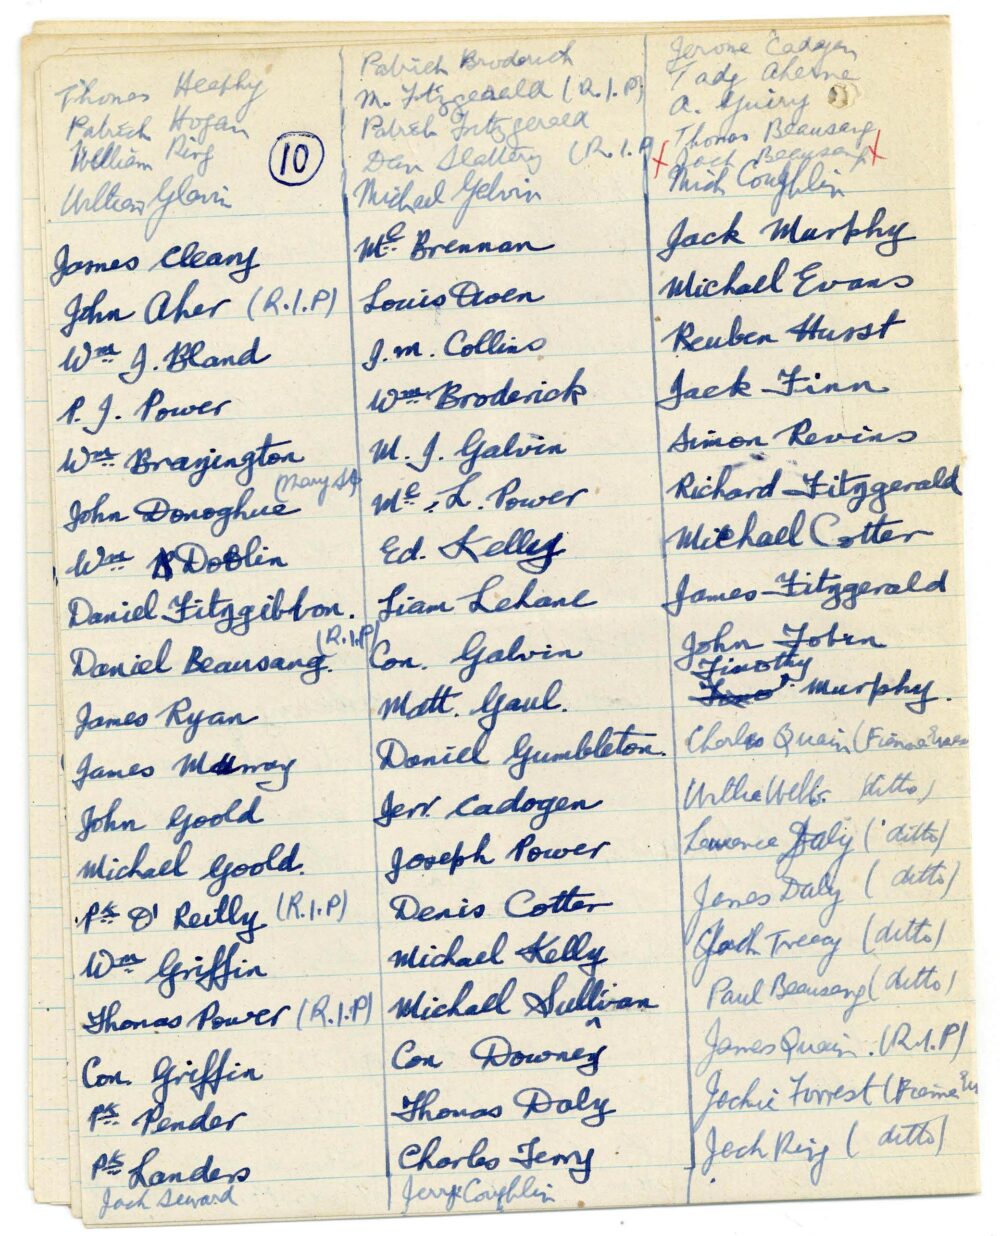 Thomas Heaphy
Patrick Hogan
William Ring
William Glavin
10
James Cleary
John Aher (R.I.P)
Wm J. Bland
P. J. Power
Wm Brajington
John Donoghue (Mary St)
Wm Doblin
Daniel Fitzgibbon.
Daniel Beausang. (R.I.P)
James Ryan
James Murray
John Goold
Michael Goold.
Pk O' Reilly (R.I.P)
Wm Griffin
Thomas Power (R.I.P)
Con. Griffin
Pk Pender
Pk Landers
Jack Seward
Patrick Broderick
M. Fitzgerald (R.I.P)
Patrick Fitzgerald
Dan Slattery (R.I.P
Michael Gelvin
Mc Brennan
Louis Owen
J.M. Collins
Wm Broderick
M. J. Galvin
Mc. L. Power
Ed. Kelly
Liam Lehane
Con. Galvin
Matt. Gaul.
Daniel Gumbleton.
Jerr. Cadogen
Joseph Power
Denis Cotter
Michael Kelly
Michael Sullivan
Con Downey
Thomas Daly
Charles Terry
Jerry Coughlin
Jerome Cadogen
Tady Aherne
A. Guiry
Thomas Beausang
x Jack Beausang x
Mich Coughlin
Jack Murphy
Michael Evans
Reuben Hurst
Jack Finn
Simon Revins
Richard Fitzgerald
Michael Cotter
James Fitzgerald
John Tobin
Timothy
Murphy.
Charles Quain (Fianna
Willie Webb. ditto)
Lawrence Daly (ditto)
James Daly (ditto)
Jack Treacy (ditto)
Paul Beausang (ditto)
James Quain. (R.I.P)
Jackie Forrest (Fianna
Jack Ring (ditto)